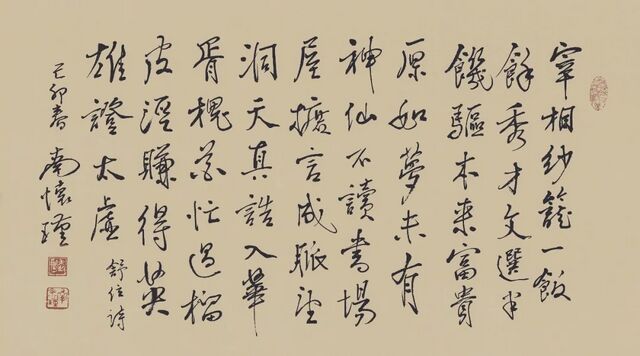 宰相紗籠一飯
餘秀才文選半
饑驅本來富貴
原如夢未有
神仙不讀書場
屋摭言成脈望
洞天真誥入華
胥槐花忙過榴
皮溼賺得英
雄證太虛
舒位詩
己卯春 南懷瑾